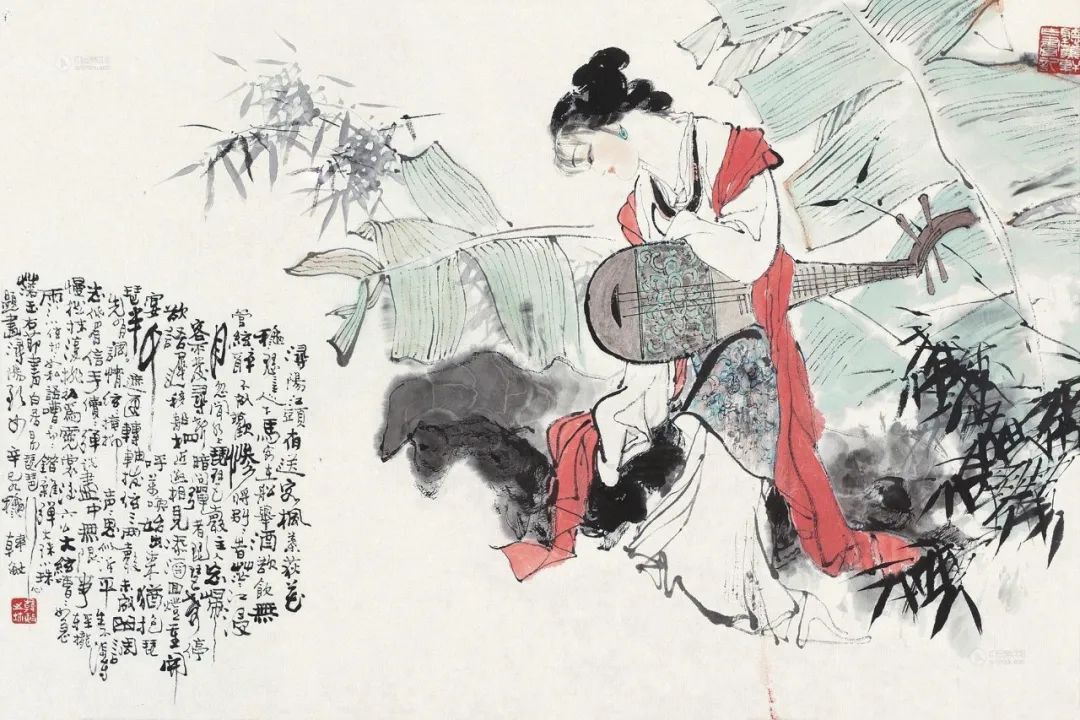 潯陽江頭夜送客楓葉荻花
秋瑟瑟主人下馬客在船舉酒欲飲無
管絃醉不成歡慘將別別時茫茫江浸
月忽聞水上琵琶聲主人忘歸
客不發尋聲暗問彈者誰琵琶聲停
欲語遲移船相近邀相見添酒回燈重開
宴千呼萬喚始出來猶抱琵
琶半遮面轉軸撥絃三兩聲未成曲調
先有情絃絃掩抑聲聲思似訴平生不得
志低眉信手續續彈說盡心中無限事輕攏
慢撚抹復挑初為霓裳後六幺大絃嘈嘈如急
雨小絃切切如私語嘈嘈切切錯雜彈大珠小珠
落玉盤右節書白居易琵琶行
題畫潯陽歌女辛巳秋韓敏